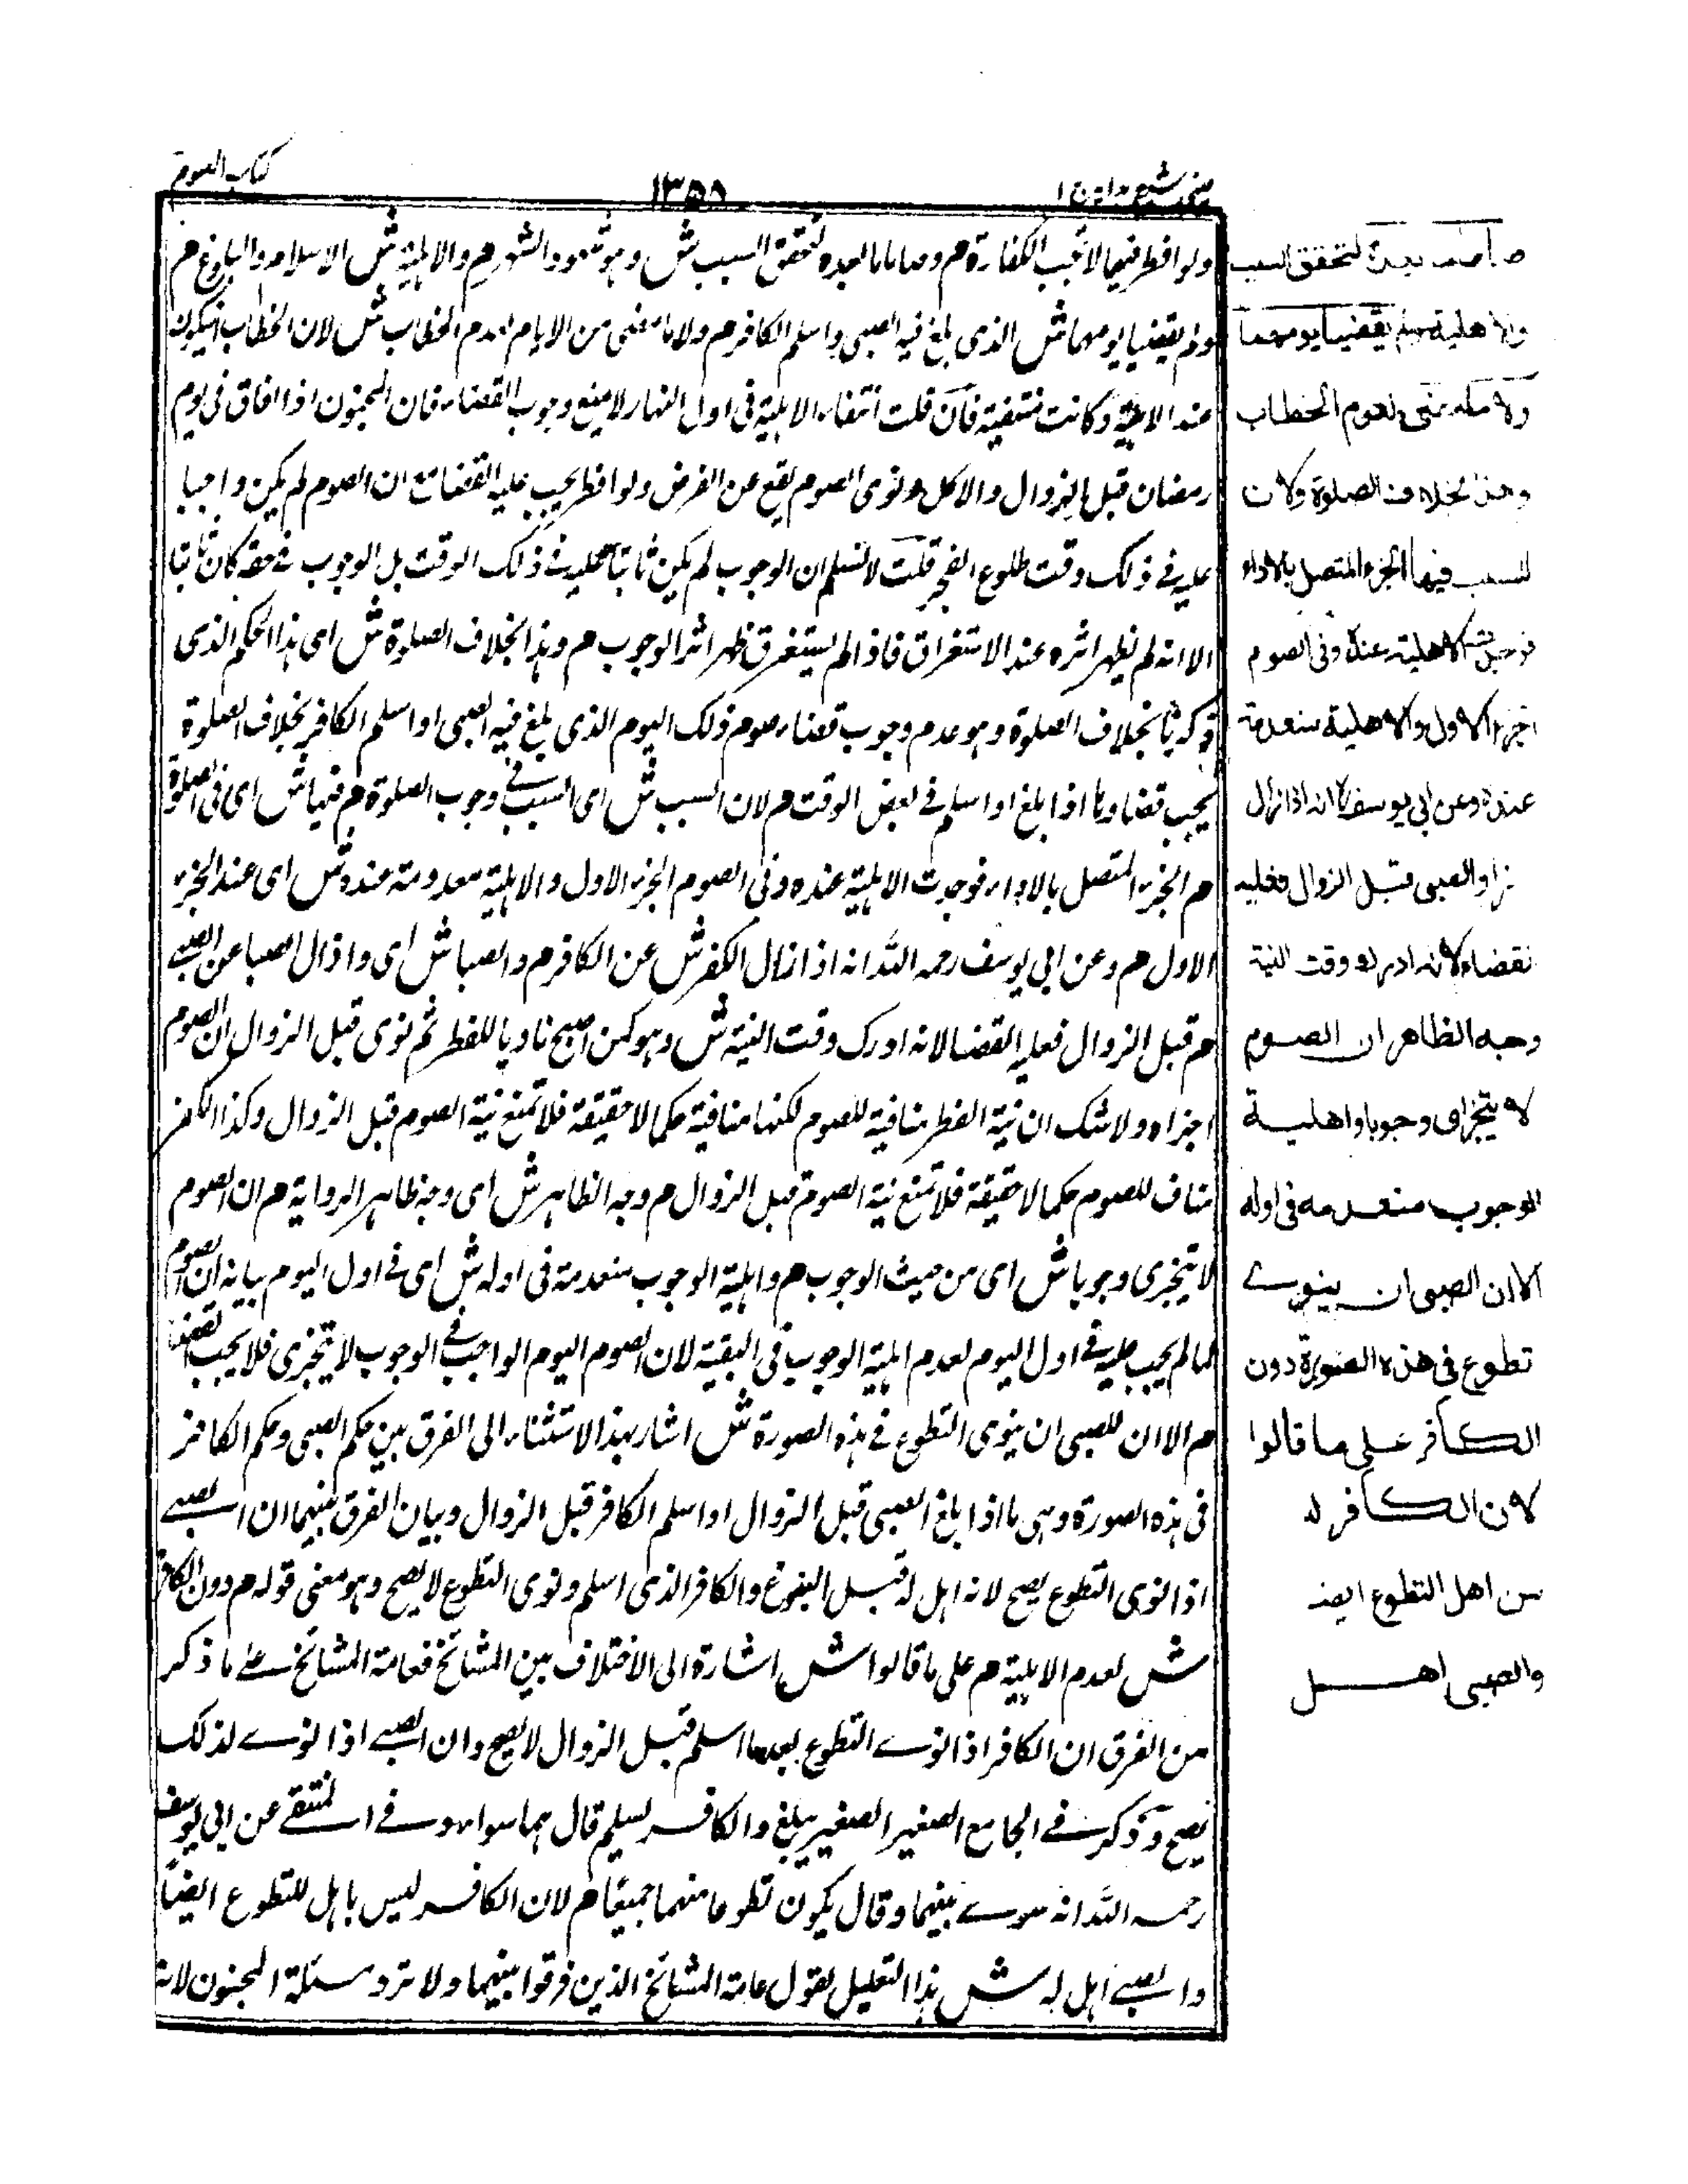 كتاب الصوم
١٣٥٥
ولو افطر فيهما لا تجب الكفارة م وصاما ما بعده لتحقق السبب ش وهو شهود الشهر م والاهلية ش الاسلام والبلوغ م
ولم يقضيا يومهما ش الذي بلغ فيه الصبي واسلم الكافر م ولا ما مضى من الايام لعدم الخطاب ش لان الخطاب انما يكون
عند الاهلية وكانت منتفية فان قلت انتفاء الاهلية في اول النهار لا يمنع وجوب القضاء فان المجنون اذا افاق في يوم
رمضان قبل الزوال والاكل ونوى الصوم يقع عن الفرض ولو افطر يجب عليه القضاء مع ان الصوم لم يكن واجبا
عليه في ذلك وقت طلوع الفجر قلت لا نسلم ان الوجوب لم يكن ثابتا عليه في ذلك الوقت بل الوجوب في حقه كان ثابتا
الا انه لم يظهر اثره عند الاستغراق فاذا لم يستغرق ظهر اثر الوجوب م وهذا بخلاف الصلوة ش اى هذا الحكم الذى
ذكرنا بخلاف الصلوة وهو عدم وجوب قضاء صوم ذلك اليوم الذي بلغ فيه الصبى او اسلم الكافر بخلاف الصلوة
يجب قضاءها اذا بلغ او اسلم في بعض الوقت م لان السبب ش اى السبب في وجوب الصلوة م فيها ش اى فى الصلوة
م الجزء المتصل بالاداء فوجدت الاهلية عنده وفى الصوم الجزء الاول والاهلية معدومة عنده ش اى عند الجزء
الاول م وعن ابي يوسف رحمه الله انه اذا زال الكفر ش عن الكافر م والصبا ش اى واذا زال الصبا عن الصبي
م قبل الزوال فعليه القضا لانه ادرك وقت النية ش وهو كمن اصبح ناويا للفطر ثم نوى قبل الزوال ان الصوم
اجزاه ولا شك ان نية الفطر منافية للصوم لكنها منافية حكما لا حقيقة فلا تمنع نية الصوم قبل الزوال وكذا الكفر
مناف للصوم حكما لا حقيقة فلا تمنع نية الصوم قبل الزوال م وجه الظاهر ش اى وجه ظاهر الرواية م ان الصوم
لا يتجزى وجوبا ش اى من حيث الوجوب م واهلية الوجوب منعدمة فى اوله ش اى في اول اليوم بيانه ان الصوم
لما لم يجب عليه في اول اليوم لعدم اهلية الوجوب في البقية لان الصوم اليوم الواجب في الوجوب لا يتجزى فلا يجب القضا
م الا ان للصبى ان ينوى التطوع في هذه الصورة ش اشار بهذا الاستثناء الى الفرق بين حكم الصبى وحكم الكافر
فى هذه الصورة وهى ما اذا بلغ الصبى قبل الزوال او اسلم الكافر قبل الزوال وبيان الفرق بينهما ان الصبي
اذا نوى التطوع يصح لانه اهل له قبل البلوغ والكافر الذى اسلم ونوى التطوع لا يصح وهو معنى قوله م دون الكافر
ش لعدم الاهلية م على ما قالوا ش اشارة الى الاختلاف بين المشائخ فعامة المشائخ على ما ذكر
من الفرق ان الكافر اذا نوى التطوع بعد ما اسلم قبل الزوال لا يصح وان الصبي اذا نوى لذلك
يصح وذكر في الجامع الصغير الصغير يبلغ والكافر يسلم قال هما سواء وفي المنتقى عن ابي يوسف
رحمه الله انه سوى بينهما وقال يكون تطوعا منهما جميعا م لان الكافر ليس باهل للتطوع ايضا
والصبي اهل له ش هذا التعليل لقول عامة المشائخ الذين فرقوا بينهما ولا ترد مسئلة المجنون لانه
صاما بعده لتحقق السبب
والاهلية ولم يقضيا يومهما
ولا ما مضى لعدم الخطاب
وهذا بخلاف الصلوة لان
السبب فيها الجزء المتصل بالاداء
فوجدت الاهلية عنده وفى الصوم
الجزء الاول والاهلية منعدمة
عنده وعن ابي يوسف انه اذا زال
او الصبى قبل الزوال فعليه
القضاء لانه ادرك وقت النية
وجه الظاهر ان الصوم
لا يتجزى وجوبا واهلية
الوجوب منعدمة فى اوله
الا ان للصبى ان ينوي
تطوع فى هذه الصورة دون
الكافر على ما قالوا
لان الكافر
من اهل التطوع ايضا
والصبى اهل